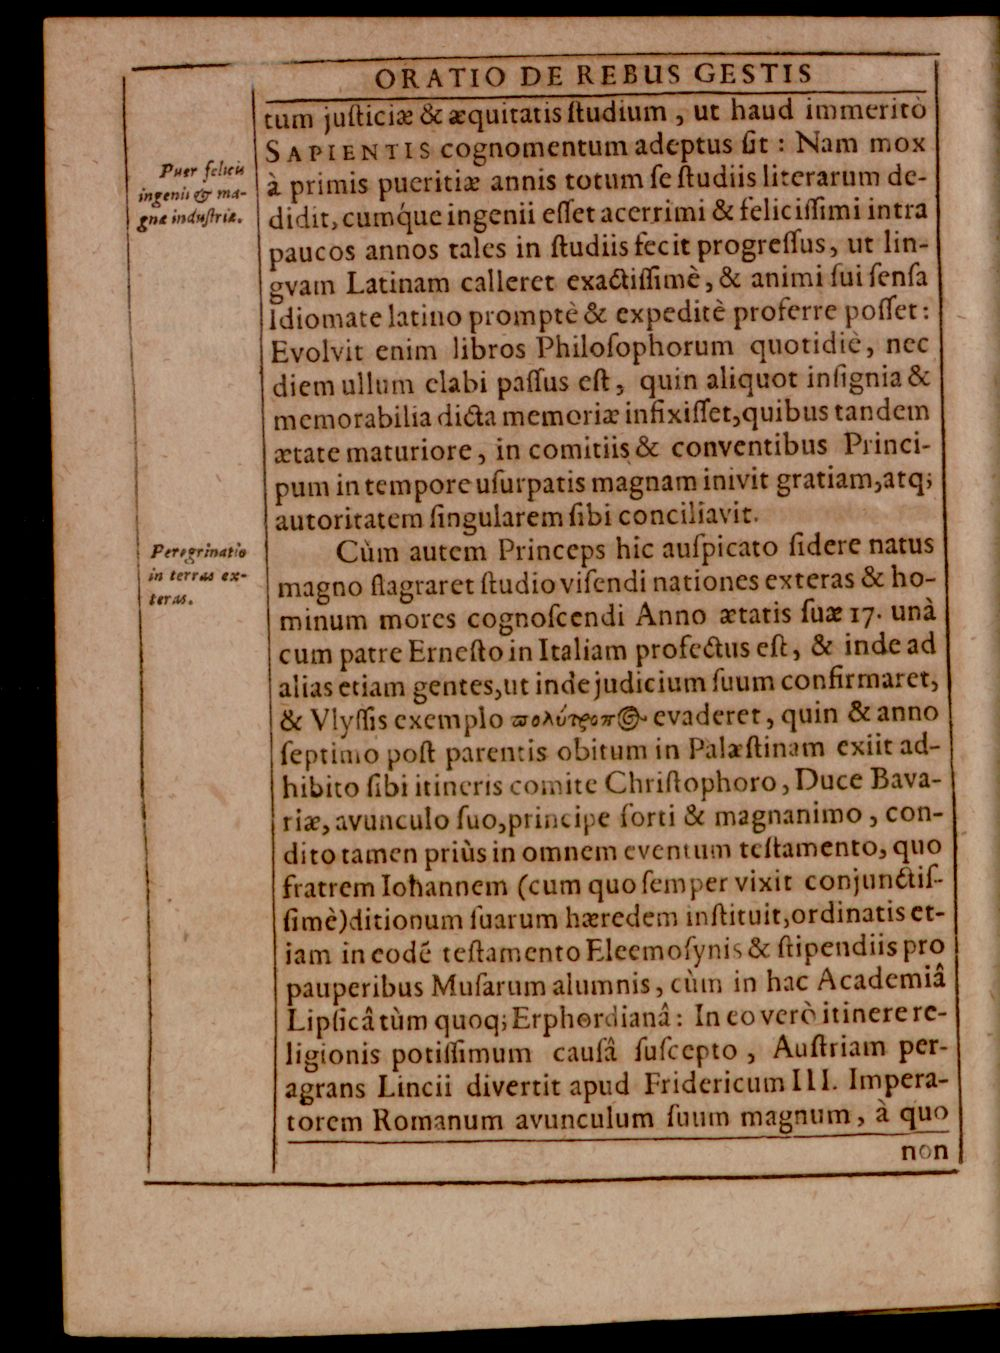 ORATIO DE REBUS GESTIS
tum juſticiæ & æquitatis ſtudium, ut haud immeritò
SAPIENTIS cognomentum adeptus ſit : Nam mox
Puer felicis
ingenii & ma-
gnæ induſtriæ.
à primis pueritiæ annis totum ſe ſtudiis literarum de-
didit, cumq́ue ingenii eſſet acerrimi & feliciſſimi intra
paucos annos tales in ſtudiis fecit progreſſus, ut lin-
gvam Latinam calleret exactiſſimè, & animi ſui ſenſa
Idiomate latino promptè & expeditè proferre poſſet:
Evolvit enim libros Philoſophorum quotidiè, nec
diem ullum elabi paſſus eſt, quin aliquot inſignia &
memorabilia dicta memoriæ infixiſſet, quibus tandem
ætate maturiore, in comitiis & conventibus Princi-
pum in tempore uſurpatis magnam inivit gratiam, atq;
autoritatem ſingularem ſibi conciliavit.
Peregrinatio
in terras ex-
teras.
Cùm autem Princeps hic auſpicato ſidere natus
magno flagraret ſtudio viſendi nationes exteras & ho-
minum mores cognoſcendi Anno ætatis ſuæ 17. unà
cum patre Erneſto in Italiam profectus eſt, & inde ad
alias etiam gentes, ut inde judicium ſuum confirmaret,
& Vlyſſis exemplo πολύτροπ@ evaderet, quin & anno
ſeptimo poſt parentis obitum in Palæſtinam exiit ad-
hibito ſibi itineris comite Chriſtophoro, Duce Bava-
riæ, avunculo ſuo, principe forti & magnanimo, con-
dito tamen priùs in omnem eventum teſtamento, quo
fratrem Iohannem (cum quo ſemper vixit conjunctiſ-
ſimè) ditionum ſuarum hæredem inſtituit, ordinatis et-
iam in eodẽ teſtamento Eleemoſynis & ſtipendiis pro
pauperibus Muſarum alumnis, cùm in hac Academiâ
Lipſicâ tùm quoq; Erphordianâ: In eo verò itinere re-
ligionis potiſſimum cauſâ ſuſcepto, Auſtriam per-
agrans Lincii divertit apud Fridericum III. Impera-
torem Romanum avunculum ſuum magnum, à quo
non